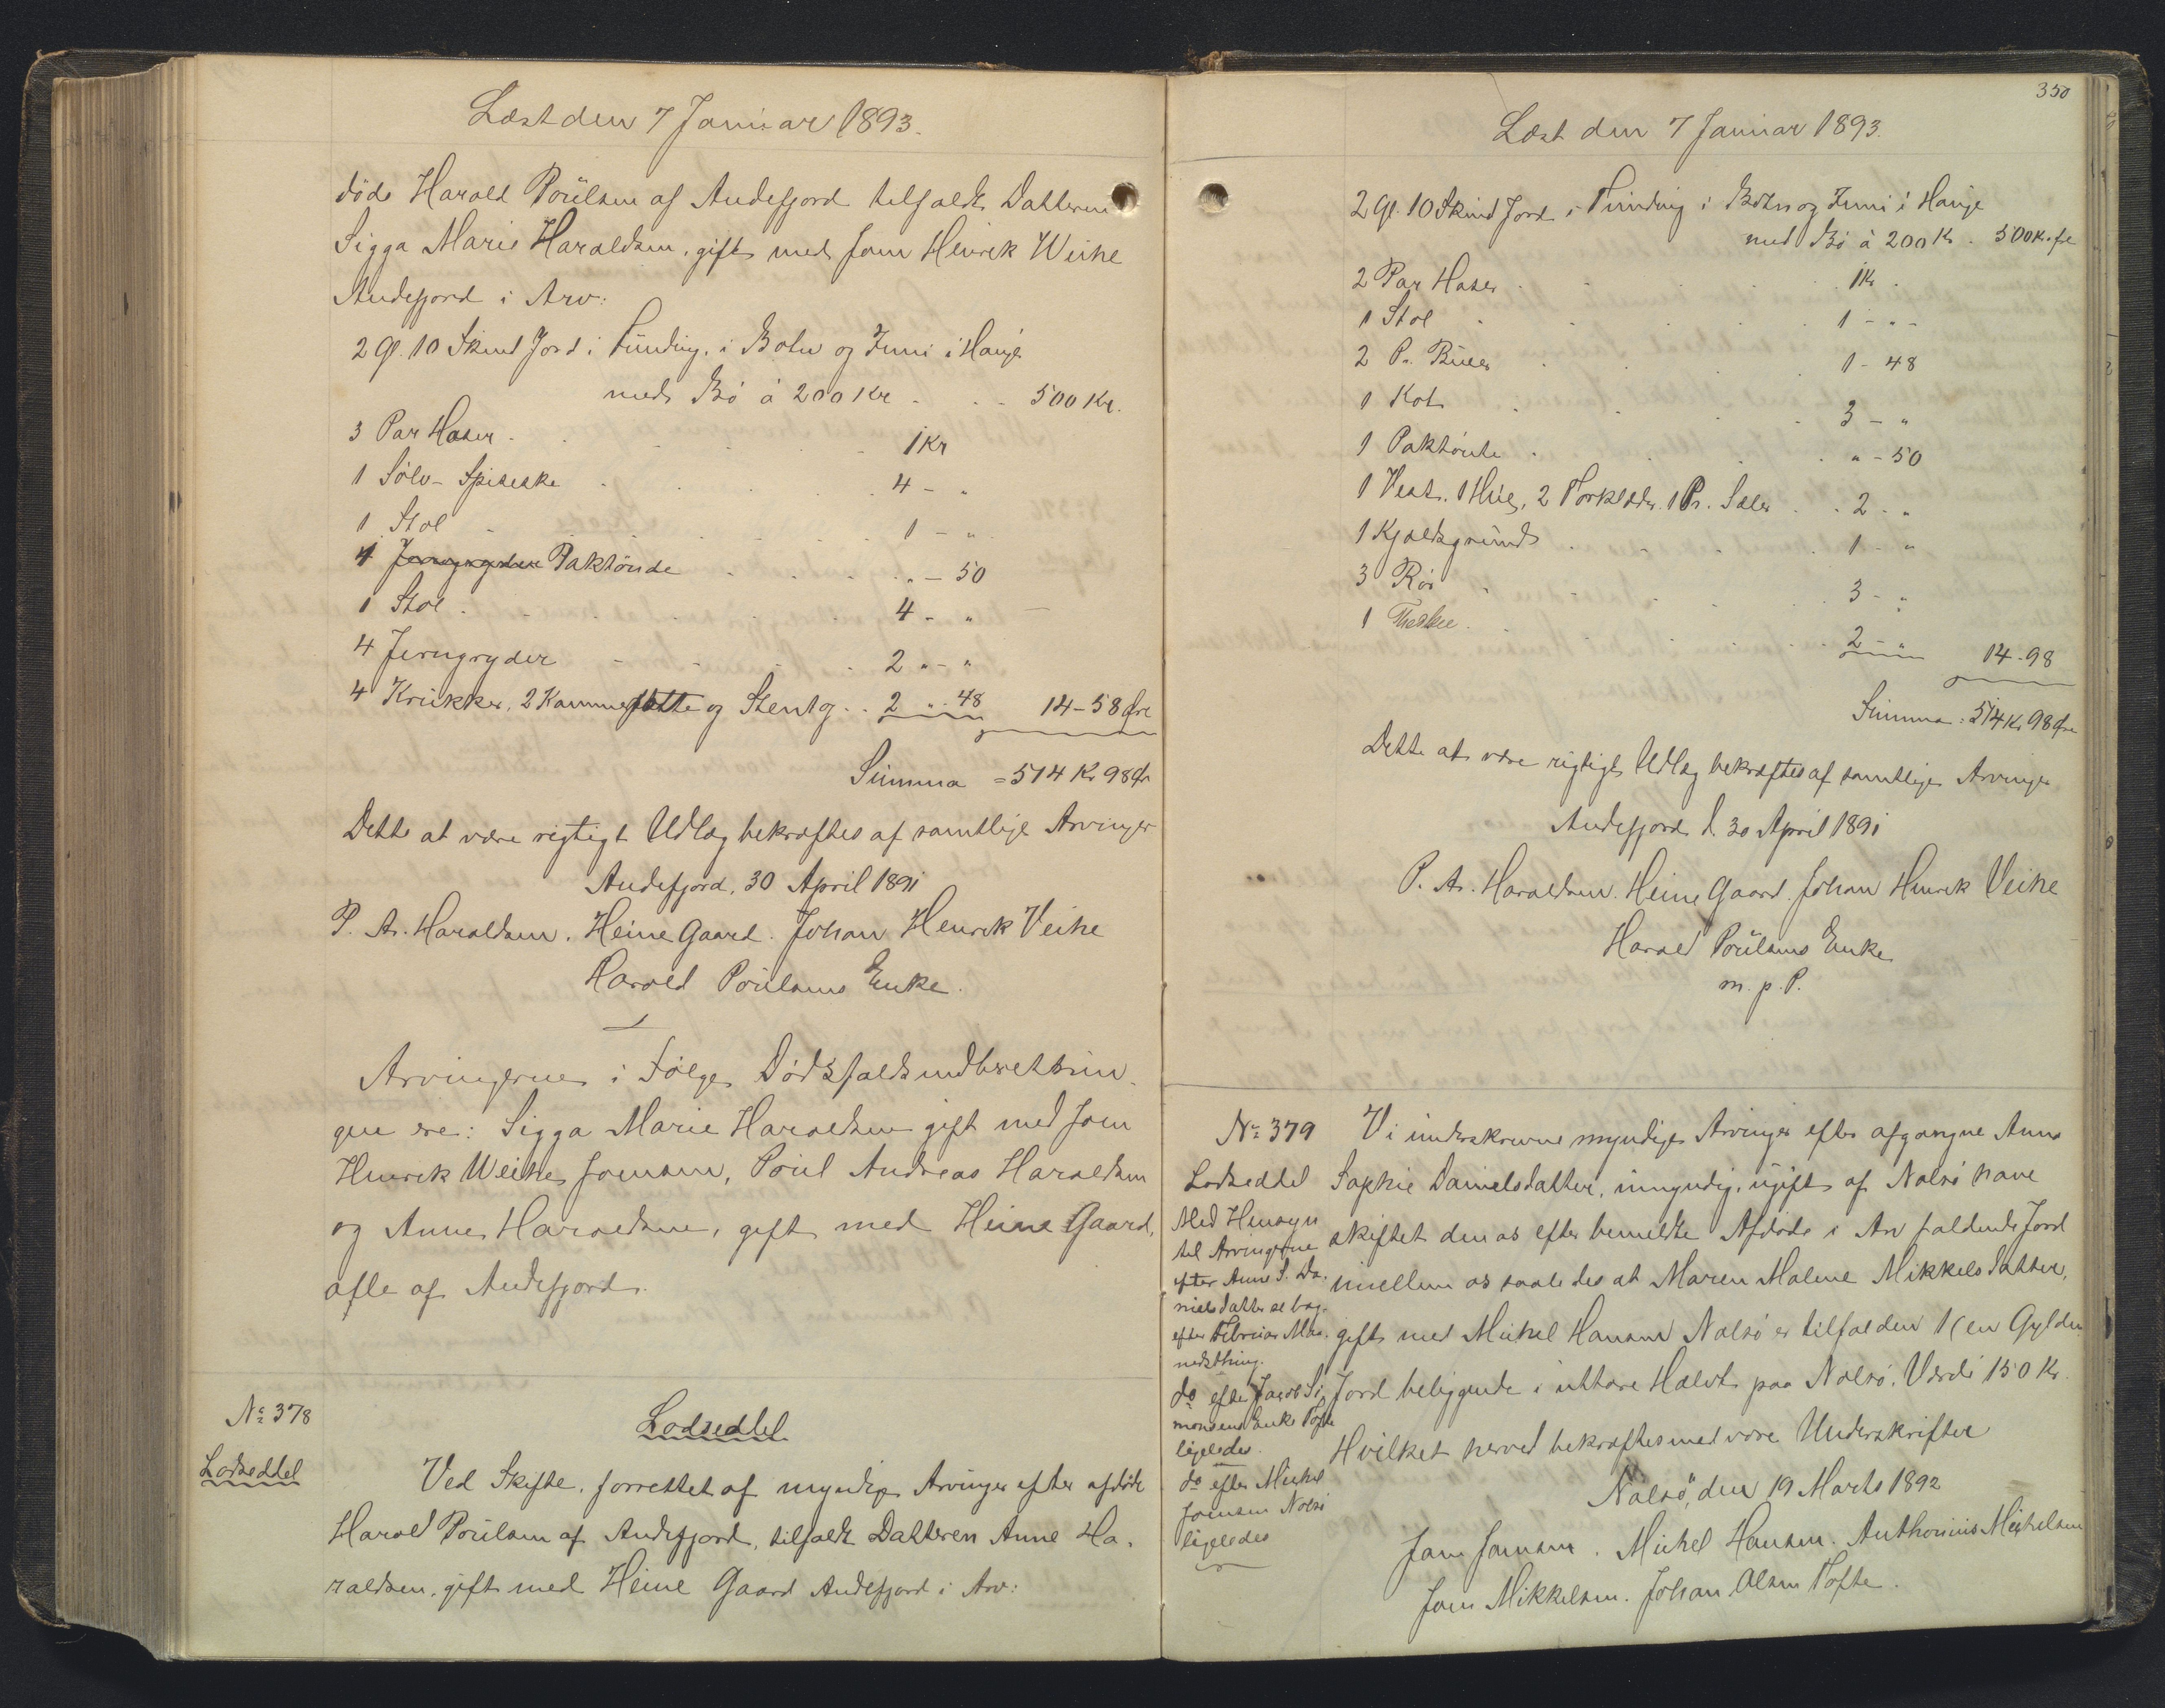 Læst den 7 Januar 1893.
døde Harald Poülsen af Andefjord tilfaldt Datteren
Sigga Marie Haraldsen, gift med Joen Henrik Weihe
Andefjord i Arv:
2 Gl. 10 Skind Jord i Funding, i Botn og Inni i Hauje
med Bø à 200 Kr. . . 500 Kr.
3 Par Hoser . . . 1 Kr
1 Sölv-Spiseske . . . 4 - "
1 Stol . . . 1 - "
1 Jerngryder Paktönde . . . " - 50
1 Stol . . . 4 - "
4 Jerngryder . . . 2 " - "
4 Krükker, 2 Kammerpotte og Stentøj . . 2 " 48 14 - 58 Øre
Summa = 514 Kr 98 Ør
Dette at være rigtigt Udlæg bekræftes af samtlige Arvinger
Andefjord, 30 April 1891
P. A. Haraldsen. Heine Gaard. Johan Henrik Veihe
Harald Poülsens Enke.
Arvingerne i Følge Dødsfaldsindberetnin-
gen ere: Sigga Marie Haraldsen gift med Joen
Henrik Weihe Joensen, Poul Andreas Haraldsen
og Anne Haraldsen, gift med Heine Gaard,
alle af Andefjord.
No 378
Lodseddel
Lodseddel
Ved Skifte, forrettet af myndige Arvinger efter afdøde
Harald Poülsen af Andefjord, tilfaldt Datteren Anne Ha-
raldsen, gift med Heine Gaard Andefjord i Arv:
350
Læst den 7 Januar 1893.
2 Gl. 10 Skind Jord i Funding i Botn og Inni i Hauje
med Bø à 200 Kr. 500 Kr. Øre
2 Par Hoser . . . 1 Kr.
1 Stol . . . 1 - " -
2 Pr. Buxer . . . 1 - 48
1 Kot . . . 3 - "
1 Paktönde . . . " - 50
1 Vest, 1 Hue, 2 Forklæder, 1 Pr. Saler . . 2 - "
1 Kjældsgrund . . . 1 - "
3 Rör . . . 3 - "
1 Theske . . . 2 - " 14 - 98
Summa: 514 Kr 98 Øre
Dette at være rigtigt Udlæg bekræftes af samtlige Arvinger
Andefjord d. 30 April 1891
P. A. Haraldsen. Heine Gaard. Johan Henrik Veihe
Harald Poülsens Enke
m. p. P.
No 379
Lodseddel
Med Hensyn
til Arvingerne
efter Anne S. Da-
nielsdatter se bag-
efter Februar Maa-
nedsthing.
do efter Jacob Si-
monsens Enke Tofte
ligeledes.
do efter Michel
Joensen Nolsö
ligeledes
Vi underskrevne myndige Arvinger efter afgangne Anna
Sophie Danielsdatter, umyndig, ugift af Nolsö have
skiftet den os efter bemeldte Afdøde i Arv faldende Jord
imellem os saaledes at Maren Malene Mikkelsdatter,
gift med Michel Hansen Nolsö er tilfalden 1 (en Gylden
Jord beliggende i uttare Halvt paa Nolsö. Værdi 150 Kr.
Hvilket herved bekræftes med vore Underskrifter
Nolsö, den 19 Marts 1892
Joen Joensen. Michel Hansen. Anthonius Michelsen
Joen Mikkelsen. Johan Olsen Tofte.